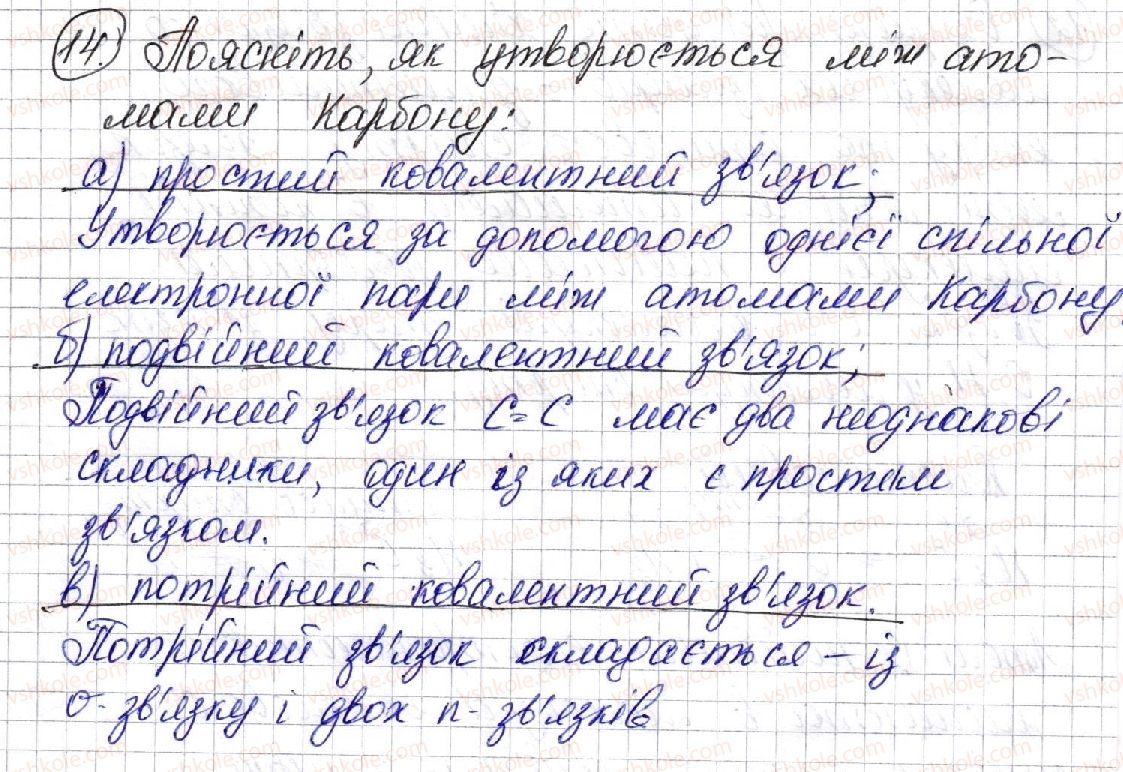 14. Поясніть, як утворюється між ато-
мами Карбону:
а) простий ковалентний зв'язок;
Утворюється за допомогою однієї спільної
електронної пари між атомами Карбону
б) подвійний ковалентний зв'язок;
Подвійний зв'язок C=C має два неоднакові
складники, один із яких є простим
зв'язком.
в) потрійний ковалентний зв'язок.
Потрійний зв'язок складається – із
σ- зв'язку і двох π- зв'язків